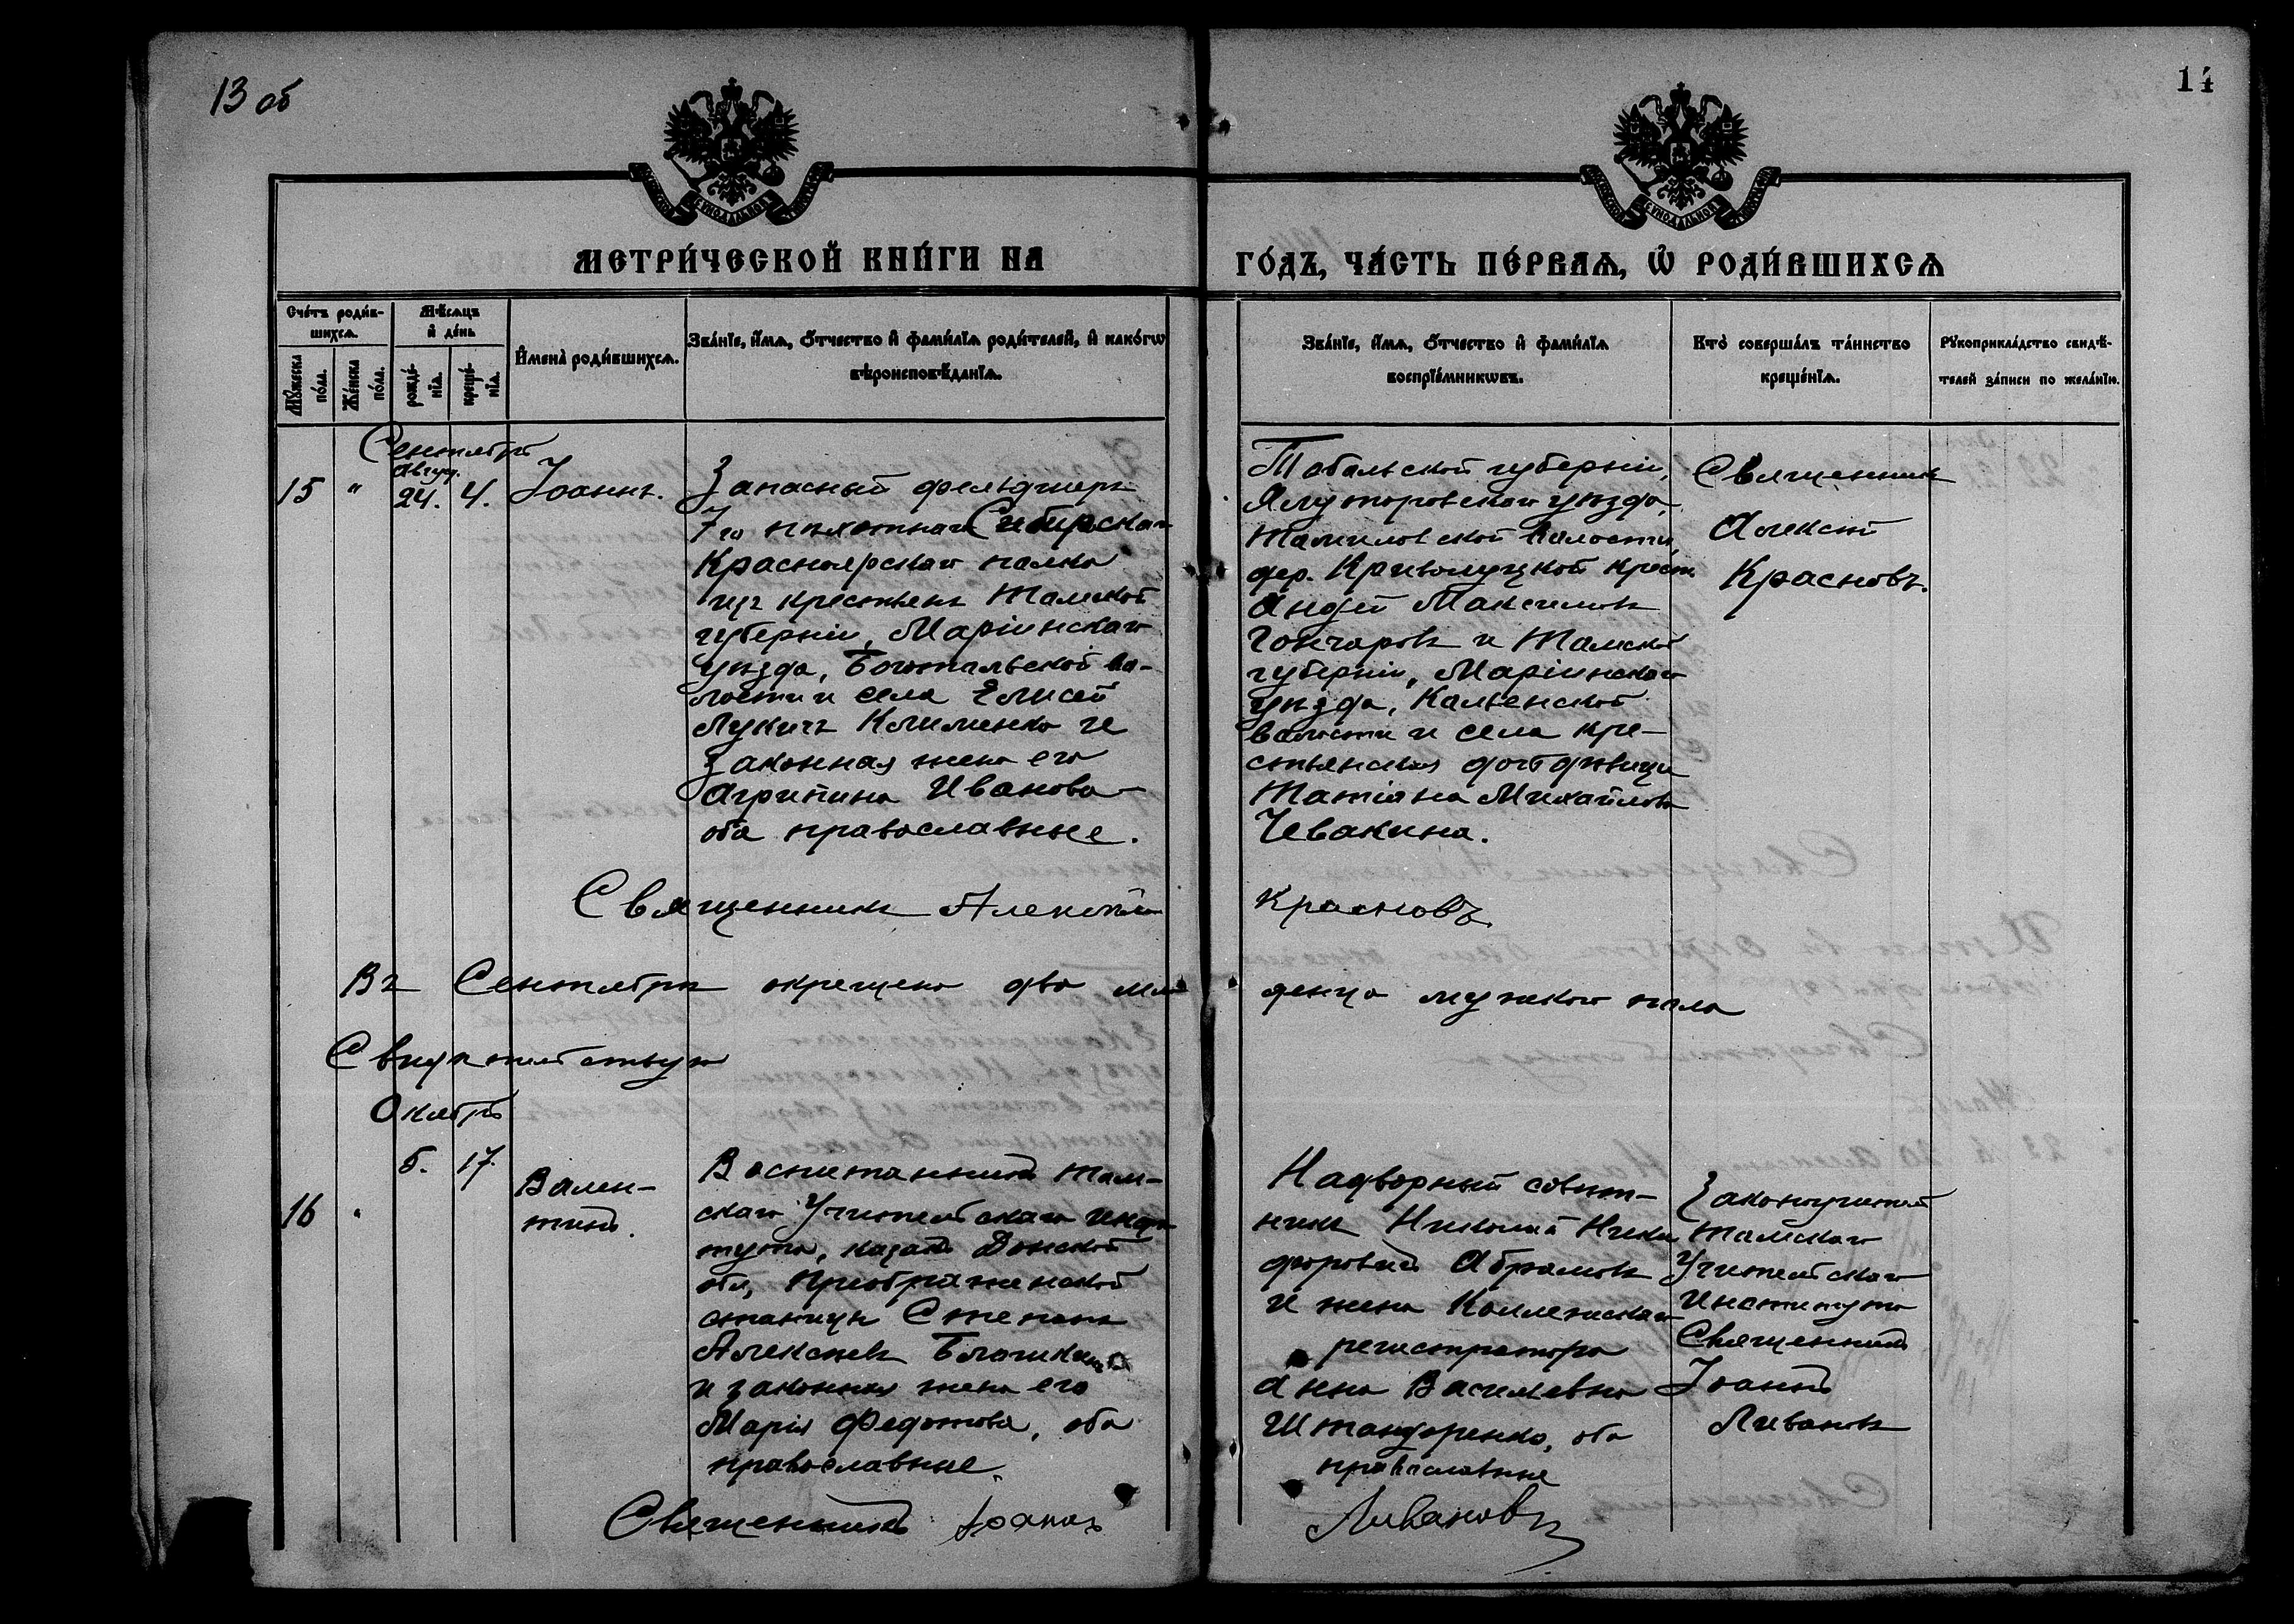 13 об
14
МЕТРИ́ЧЕСКОЙ КНИ́ГИ НА
ГО́ДЪ, ЧА́СТЬ ПЕ́РВАѦ, Ѡ РОДИ́ВШИХСѦ
Сче́тъ роди́в-
шихсѧ.
Мꙋжеска по́ла.
Же́нска по́ла.
Мѣ́сѧцъ
и҆ де́нь
рожде́-нїѧ.
креще́-нїѧ.
И҆мена̀ роди́вшихсѧ.
Зва́нїе, и҆́мѧ, ѻ҆́тчество и҆ фами́лїѧ роди́телей, и҆ како́гѡ
вѣроисповѣ́данїѧ.
Зва́нїе, и҆́мѧ, ѻ҆́тчество и҆ фами́лїѧ
воспрїе́мникѡвъ.
Кто̀ соверша́лъ та́инство
креще́нїѧ.
Рꙋкоприкла́дство свидѣ́-
телей за́писи по жела́нїю.
Сентябрь
Авгус.
15 " 24. 4. Іоаннъ.
Запасный фельдшеръ
7го пѣхотнаго Сибирскаго
Красноярскаго полка
изъ крестьянъ Томской
губерніи, Маріинскаго
уѣзда, Боготольской во-
лости и села Елисей
Лукичъ Клименко и
законная жена его
Агрипина Иванова
оба православные.
Тобольской губерніи,
Ялуторовскаго уѣзда,
Томиловской волости,
дер. Криволуцкой крест.
Андрей Максимовъ
Гончаровъ и Томской
губерніи, Маріинскаго
уѣзда,
волости и села кре-
стьянская дочь дѣвица
Татіана Михайлова
Чевакина.
Священникъ
Алексѣй
Красновъ.
Священникъ Алексѣй Красновъ
Въ Сентябрѣ окрещено два мла денца мужского пола
Свидѣтельствую
Октябрь
16 " 5. 17.
Вален-
тинъ.
Воспитанникъ Том-
скаго Учительскаго Инсти
тута, казакъ Донской
обл, Преображенской
станицы Степанъ
Алексѣевъ
и законная жена его
Марія Федотова, оба
православные
Надворный совѣт-
никъ Николай Ники
форовичъ Абрамовъ
и жена Коллежскаго
регистратора
Анна Васильевна
Штандаренко, оба
православные
Законоучитель
Томскаго
Учительскаго
Института
Священникъ
Іоаннъ
Ливановъ
Священникъ Іоаннъ Ливановъ